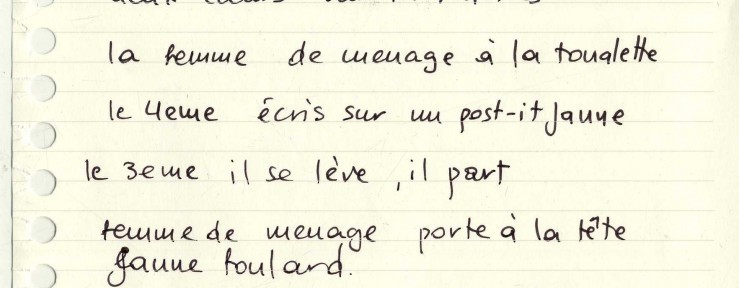 la femme de menage à la toualette
le 4eme écris sur un post-it Jaune
le 3eme il se lève, il part
femme de menage porte à la tête
Jaune foulard.